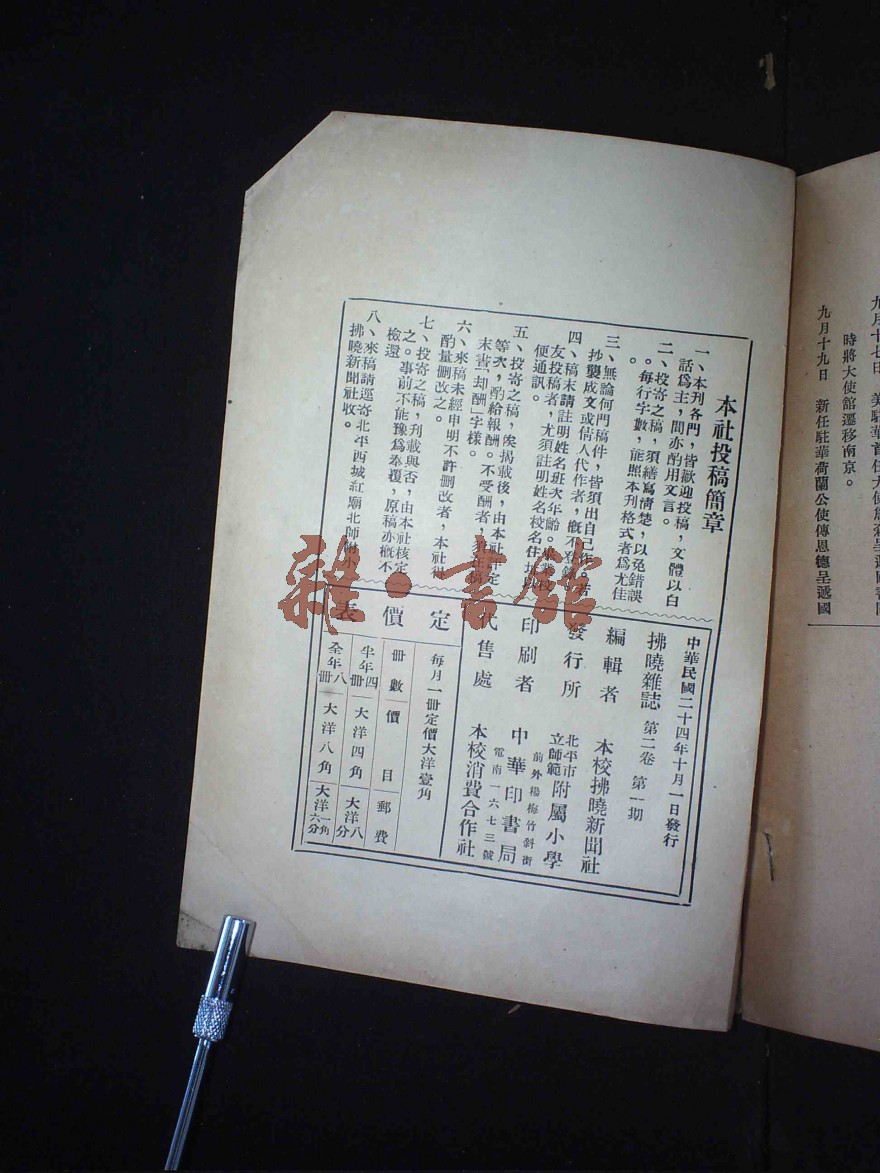 本社投稿簡章
一、本刊各門，皆歡迎投稿，文體以白
話爲主，間亦酌用文言。
二、投寄之稿，須繕寫清楚，以免錯誤
。每行字數，能照本刊格式者爲尤佳
三、無論何門稿件，皆須出自己作。若
抄襲成文或倩人代作者，槪不登錄。
四、稿末請註明姓名班次年齡。
友投稿者，尤須註明姓名校名住址以
便通訊。
五、投寄之稿，俟揭載後，由本社評定
等次，酌給報酬。不受酬者，須在稿
末書「却酬」字樣。
六、來稿未經申明不許刪改者，本社得
酌量刪改之。
七、投寄之稿，刊載與否，由本社核定
之。事前不能豫爲奉覆，原稿亦槪不
檢還
八、來稿請逕寄北平西城紅廟北師附小
拂曉新聞社收。
中華民國二十四年十月一日發行
拂曉雜誌 第二卷 第一期
編輯者 本校拂曉新聞社
發行所 北平市立師範附屬小學
印刷者 中華印書局
前外楊梅竹斜街
電南一六七三號
代售處 本校消費合作社
定價表
每月一冊定價大洋壹角
冊數 價目 郵費
半年四冊 大洋四角 大洋八分
全年八冊 大洋八角 大洋一角六分
時將大使館遷移南京。
九月十九日 新任駐華荷蘭公使傳恩德呈遞國
雜·書館